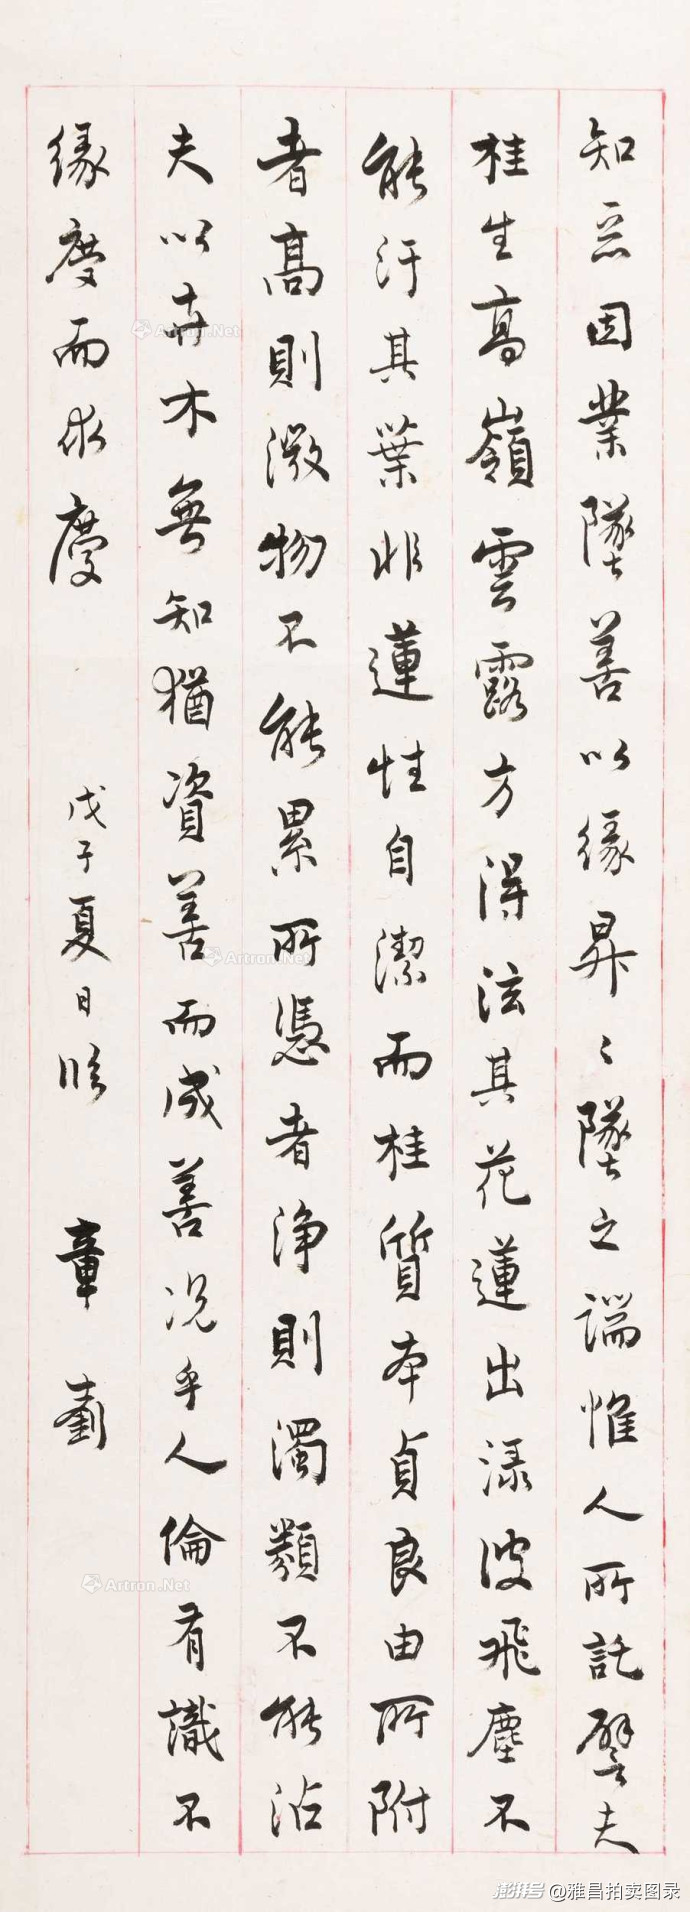 知惡因業墜善以緣昇〻墜之端惟人所託譬夫
桂生高嶺雲露方得泫其花蓮出淥波飛塵不
能汙其葉非蓮性自潔而桂質本貞良由所附
者高則微物不能累所憑者淨則濁類不能沾
夫以卉木無知猶資善而成善況乎人倫有識不
緣慶而求慶
戊子夏日臨 章劏
Artron.Net
Artron.Net
Artron.Net
澎湃号@雅昌拍卖图录